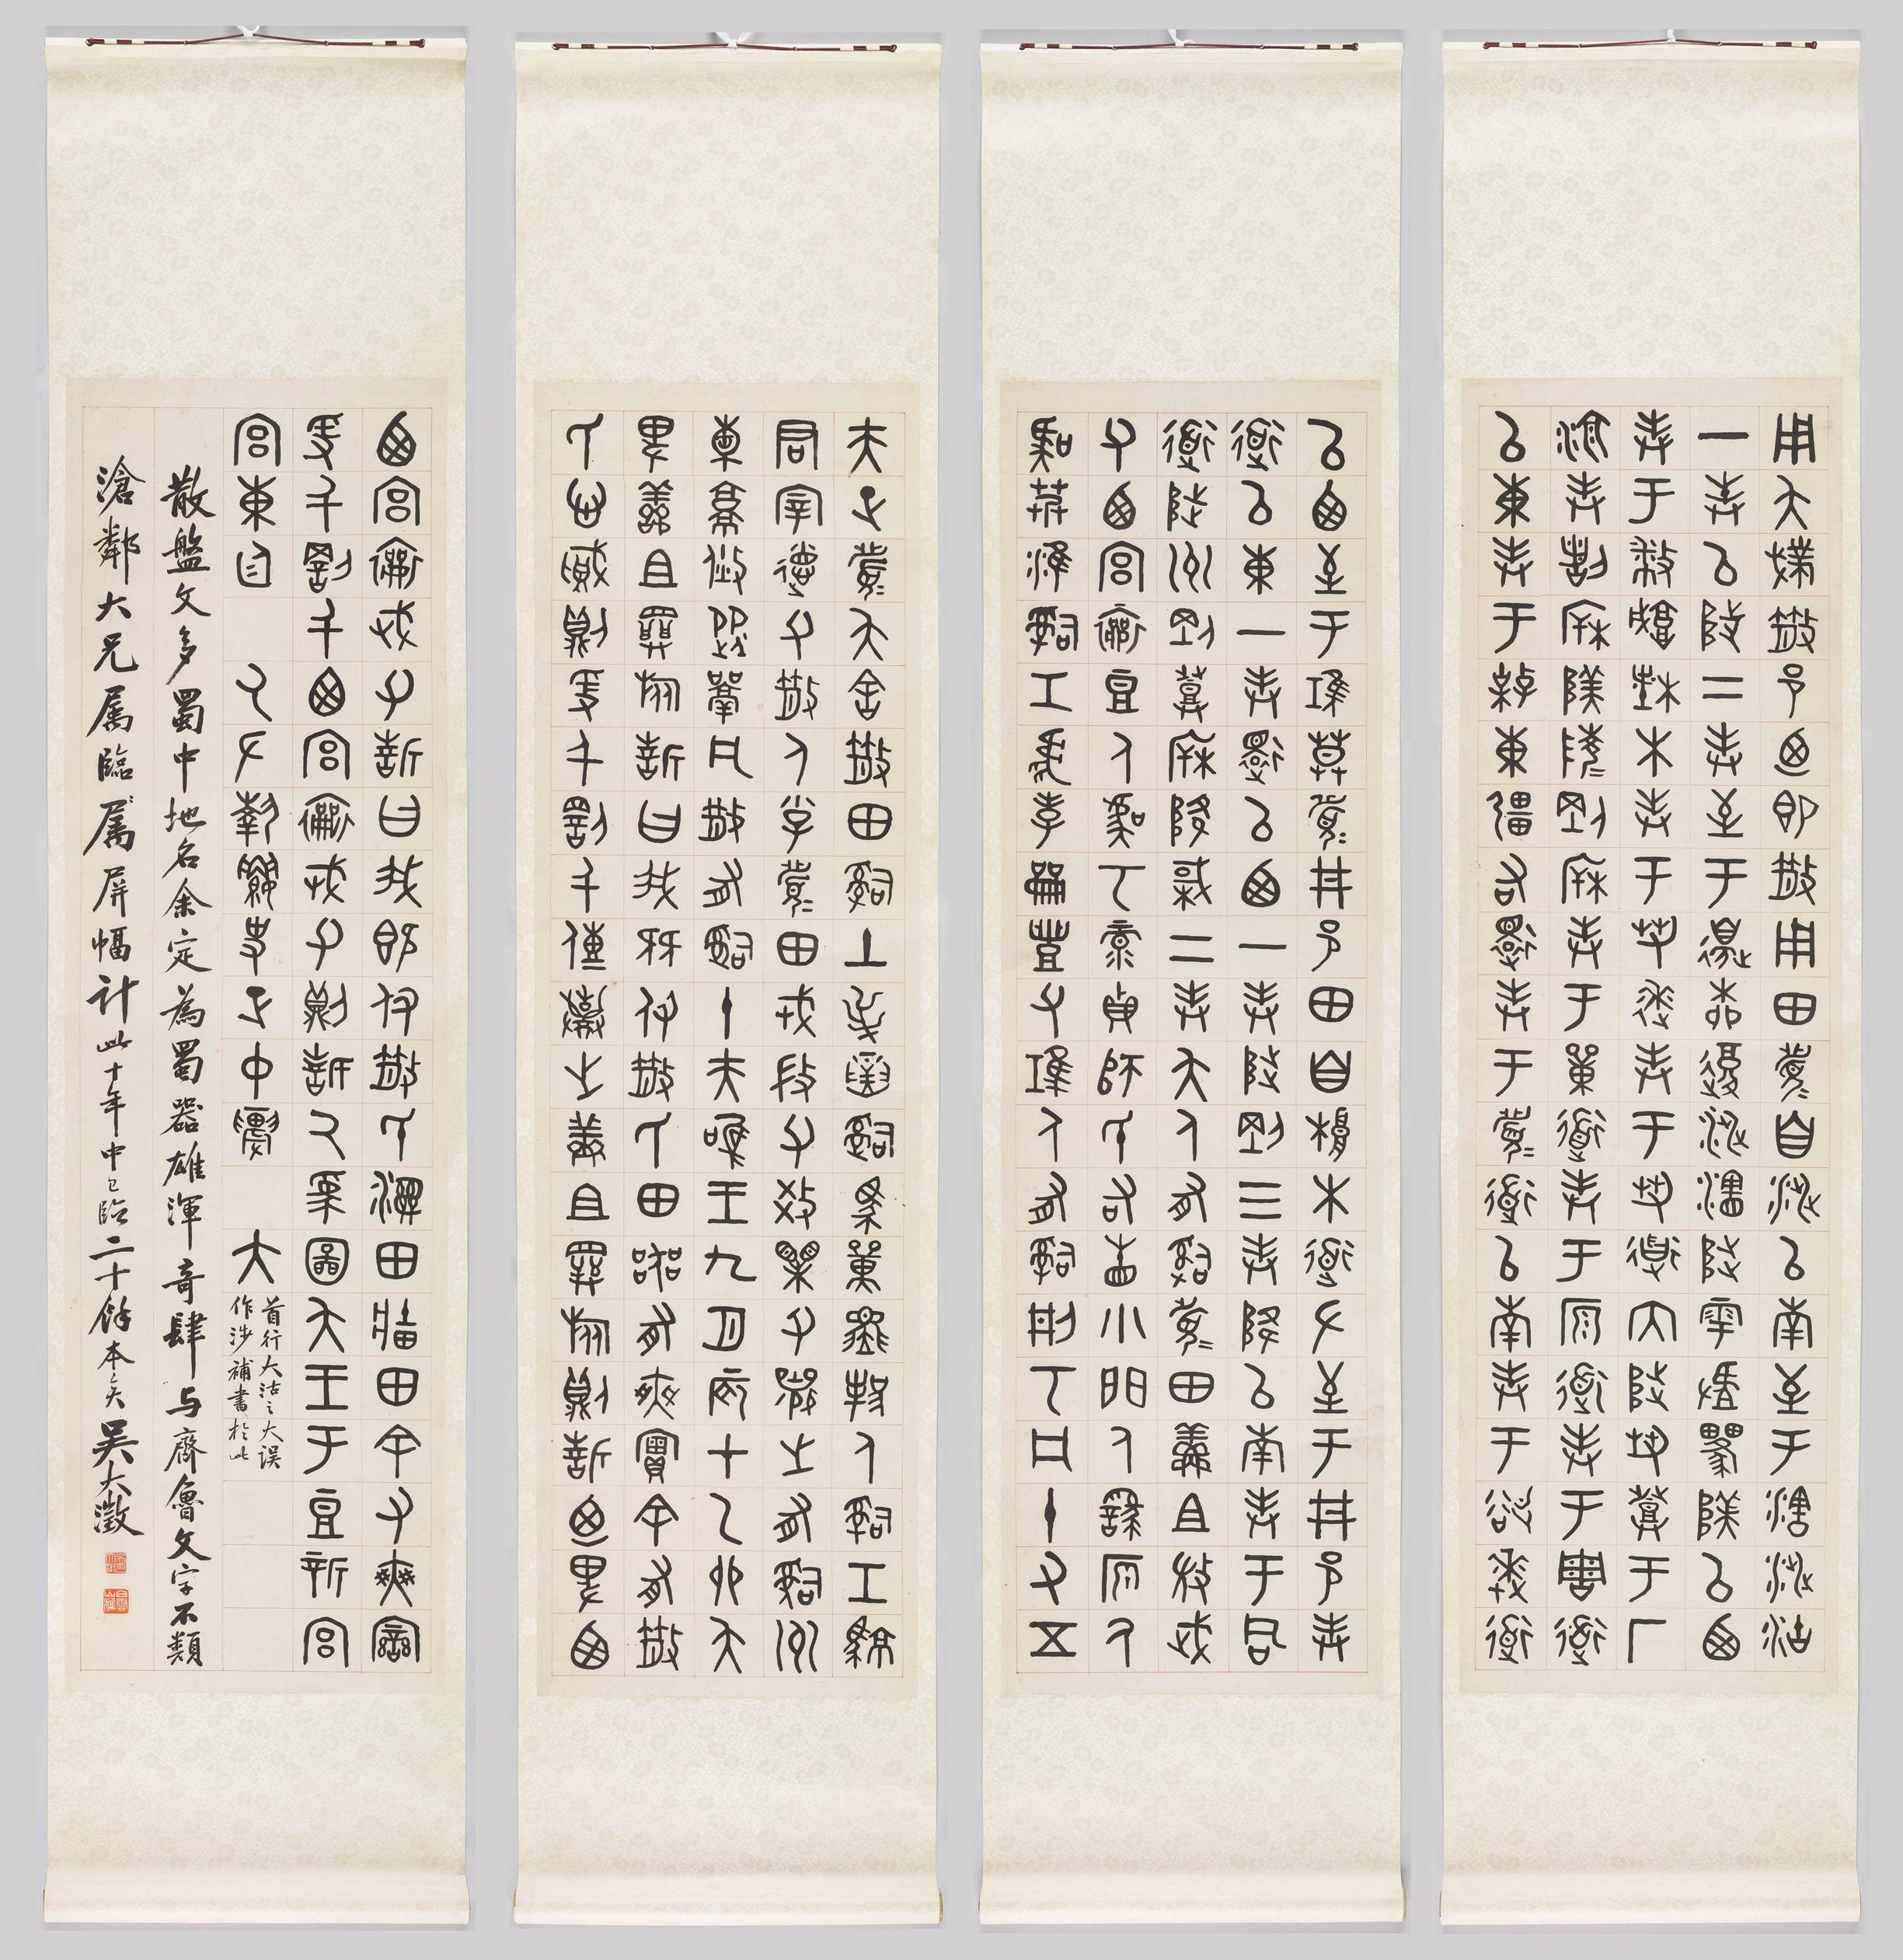 用夨撲散邑迺即散用田眉自涉以南至于瀗涉沽
一封以陟二封至于邊柳復涉瀗陟雩𠭯𨻷陕以西
封于播城楮木封于芻逨封于芻道内陟芻登于厂
湶封剖桩陕陵剛桩封于𡄹道封于原道封于周道
以東封于𣓀東疆右還封于眉道以南封于𥻆逨道
以西至于鴻莫眉井邑田自桹木道左至于井邑封
道以東一封還以西一封陟剛三封降以南封于同
道陟州剛登桩降棫二封夨人有司眉田鮮且微武
父西宫襄豆人虞丂彔貞師氏右眚小門人繇原人
虞艿淮司工虎孝𠳵豐父鴻人有司刑丂凡十又五
夫正眉夨舍散田司土屰𡨦司馬單𡴞邦人司工駷
君宰德父散人小子眉田戎微父效𣝣父襄之有司州
東橐攸從𩰬凡散有司十夫唯王九月辰才乙卯夨
俾鮮且𢍰旅誓曰我既付散氏田器有爽實余有散
氏心賊則爰千罰千傳棄之鮮且𢍰旅則誓迺俾西
西宫襄武父誓曰我既付散氏濕田牆田余又爽變
爰千罰千西宫襄武父則誓厥受圖夨王于豆新宫
宫東廷 厥左執𦅫史正中農 大
首行大沽之大误
作涉補書於此
散盤文多蜀中地名余定為蜀器雄渾奇肆与齊魯文字不類
滄鄰大兄属臨屬屏幅計此十年中已臨二十餘本矣吳大澂